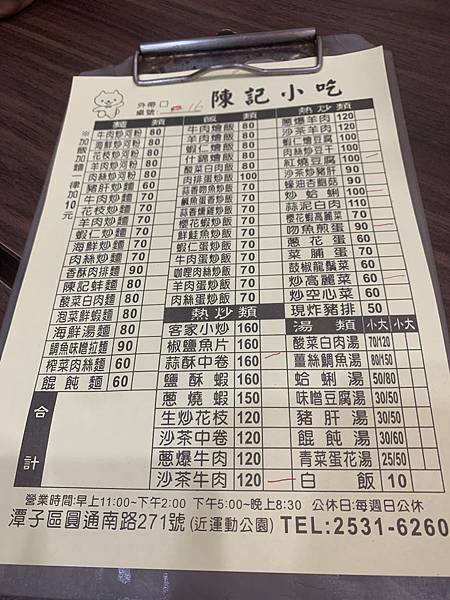 陳記小吃
外帶□
桌號: 16
※加飯加麵一律加10元
麵類
牛肉炒河粉 80
海鮮炒河粉 80
花枝炒河粉 80
蝦仁炒河粉 80
肉絲炒河粉 80
豬肝炒麵 60
牛肉炒麵 70
花枝炒麵 70
羊肉炒麵 70
蝦仁炒麵 70
海鮮炒麵 70
肉絲炒麵 70
香酥肉排麵 90
陳記蚌麵 80
酸菜白肉麵 80
泡菜鮮蝦麵 80
海鮮湯麵 80
鯛魚味噌拉麵 90
榨菜肉絲麵 60
餛飩麵 60
合計
飯類
牛肉燴飯 80
羊肉燴飯 80
蝦仁燴飯 80
什錦燴飯 80
酸菜白肉飯 80
肉排蛋炒飯 90
蒜香吻魚炒飯 70
鹹魚蛋香炒飯 70
蒜香燻雞炒飯 70
櫻花蝦炒飯 70
鮮鮭魚炒飯 70
蝦仁蛋炒飯 70
牛肉蛋炒飯 70
咖哩肉絲炒飯 70
羊肉蛋炒飯 70
肉絲蛋炒飯 70
熱炒類
客家小炒 160
椒鹽魚片 160
蒜酥中卷 160
鹽酥蝦 160
蔥燒蝦 150
生炒花枝 120
沙茶中卷 120
蔥爆牛肉 120
沙茶牛肉 120
熱炒類
蔥爆羊肉 120
沙茶羊肉 120
蝦仁爛豆腐 100
肉絲炒豆干 100
紅燒豆腐 100
沙茶炒豬肝 100
蠔油杏鮑菇 90
炒蛤蜊 100
蒜泥白肉 100
櫻花蝦高麗菜 70
吻魚煎蛋 90
蔥花蛋 60
菜脯蛋 70
鼓椒龍鬚菜 60
炒高麗菜 60
炒空心菜 60
現炸豬排 50
湯類 小大 小大
酸菜白肉湯 70/120
薑絲鯛魚湯 80/150
蛤蜊湯 50/80
味噌豆腐湯 30/50
豬肝湯 30/50
餛飩湯 30/60
青菜蛋花湯 25/50
白飯 10
營業時間:早上11:00~下午2:00 下午5:00~晚上8:30 公休日:每週日公休
潭子區圓通南路271號(近運動公園) TEL:2531-6260